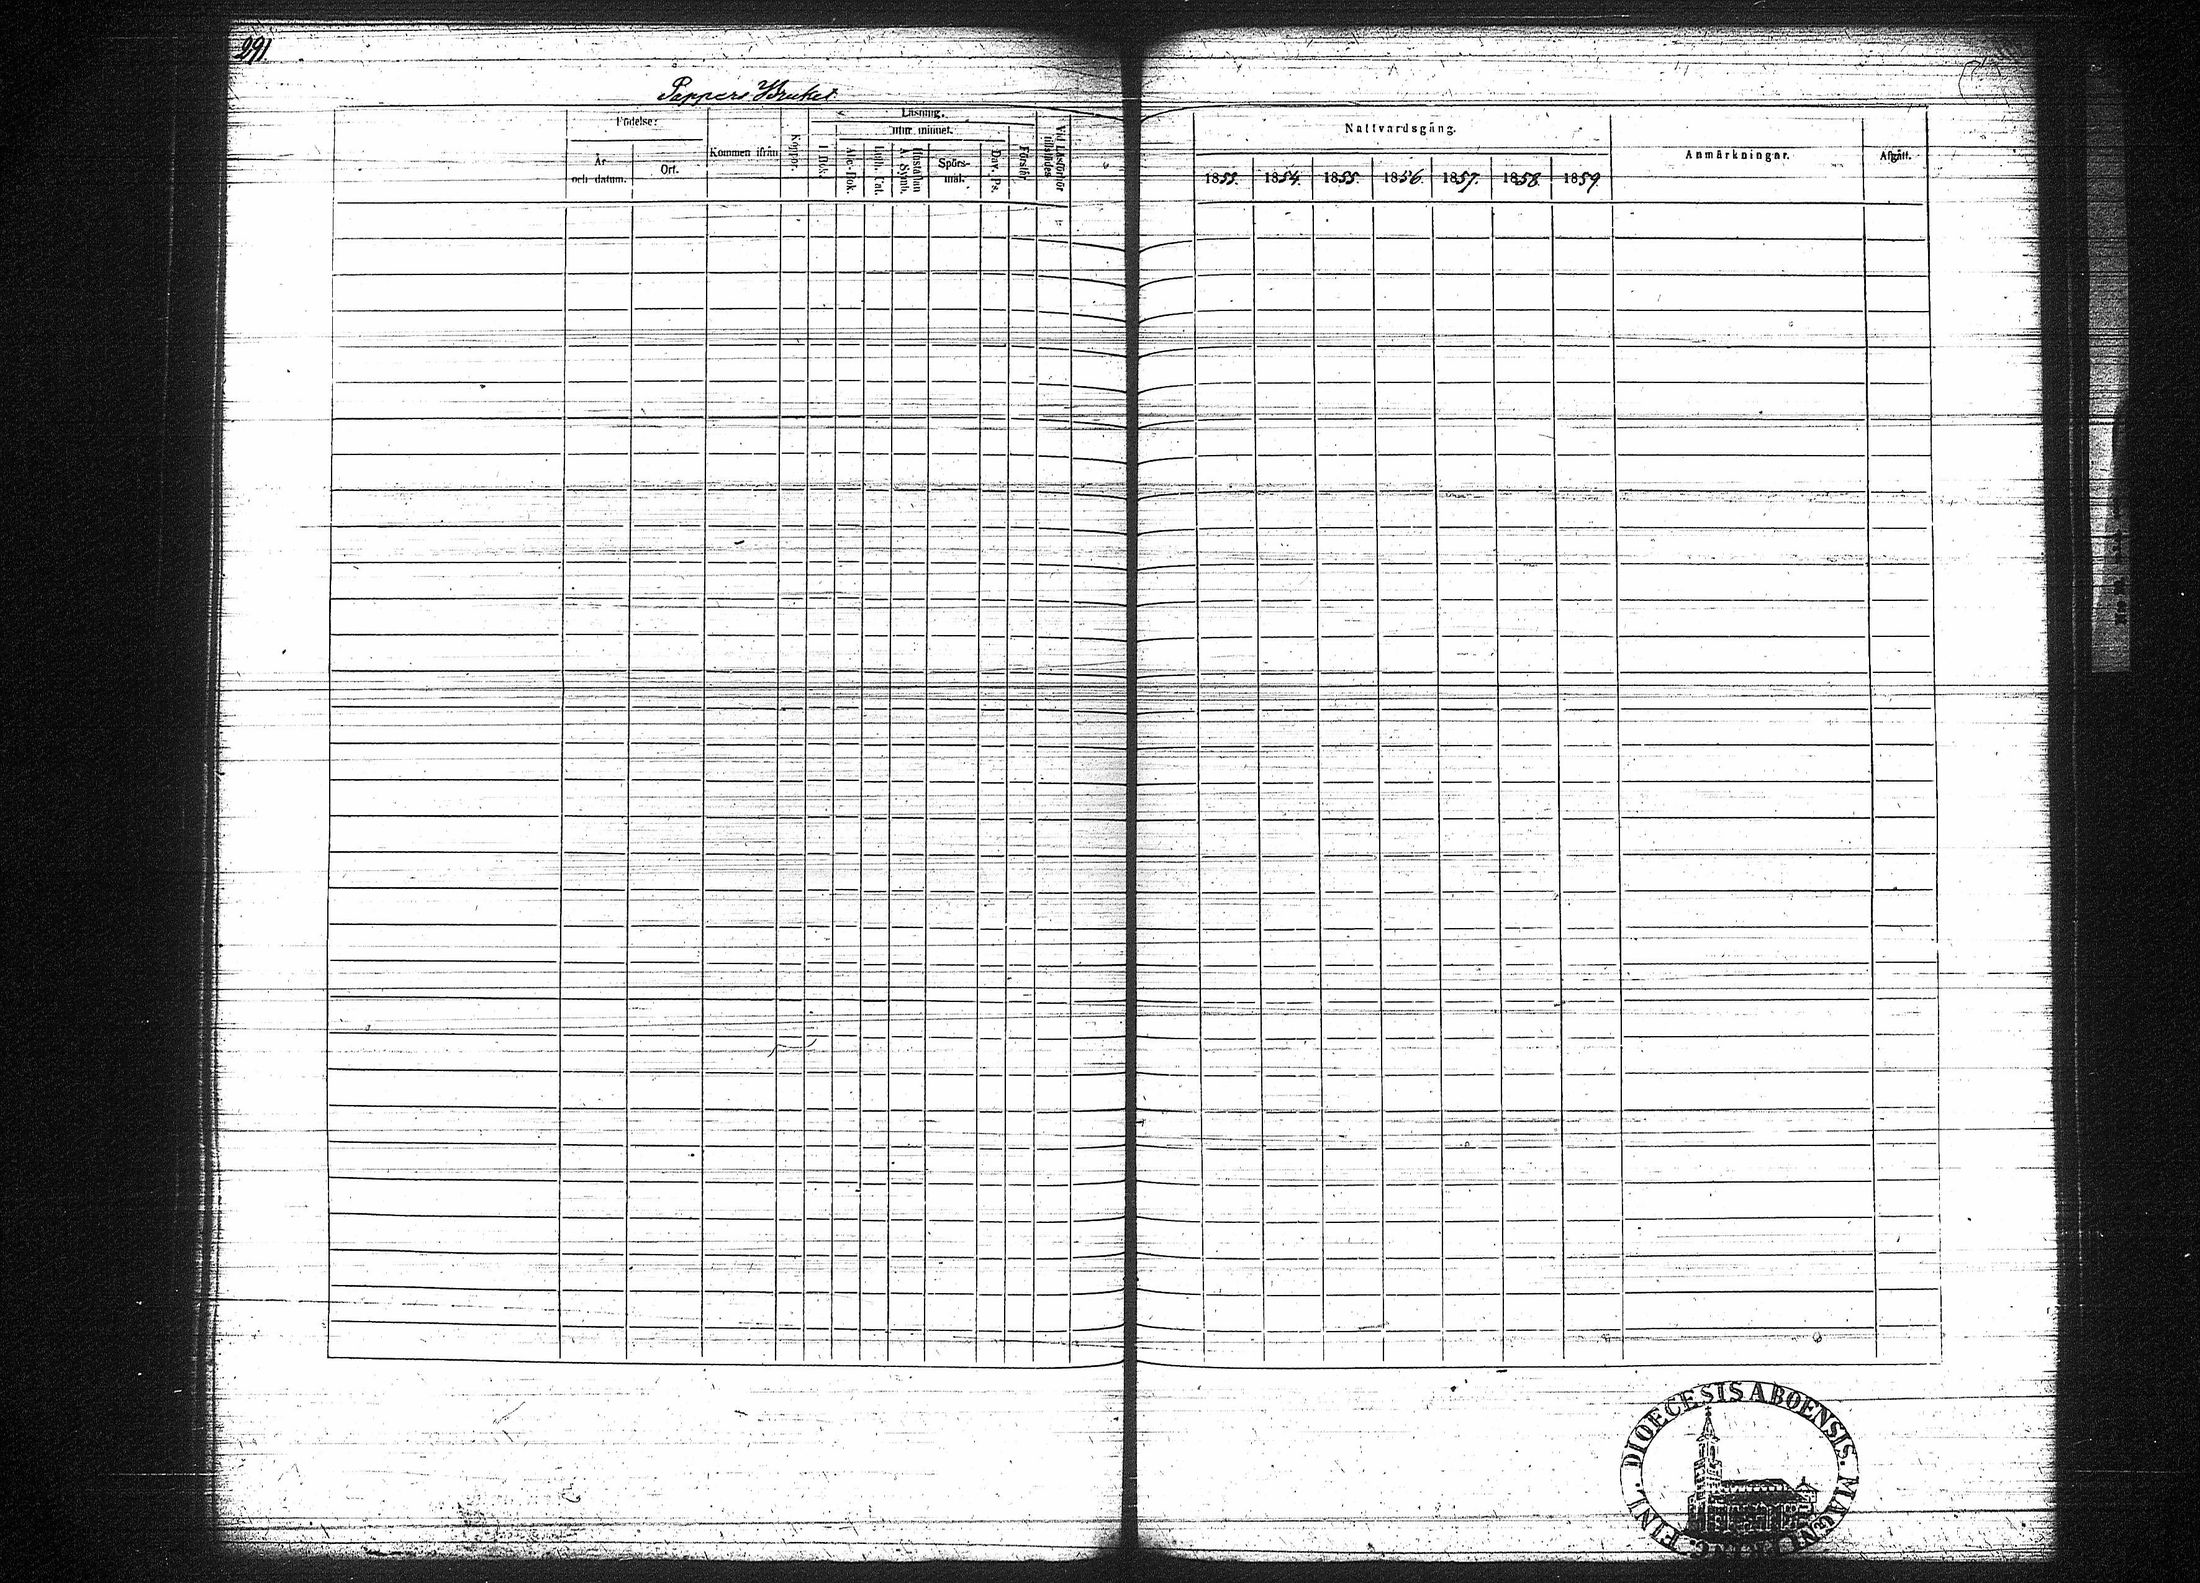 291.
Pappers Bruket
Födelse:
År
och datum.
Ort.
Kommen ifrån
Koppor.
Läsning.
utur minnet.
I Bok.
Abc-Bok.
Luth. Cat.
Hustaflan
A. Symb.
Spörs-
mål.
Dav. Ps.
Förstår.
Vid Läsförhör
Nattvardsgång.
1853. 1854. 1855. 1856. 1857. 1858. 1859.
Anmärkningar.
Afgått.
FINL. DIOECESIS ABOENSIS. MAGNI